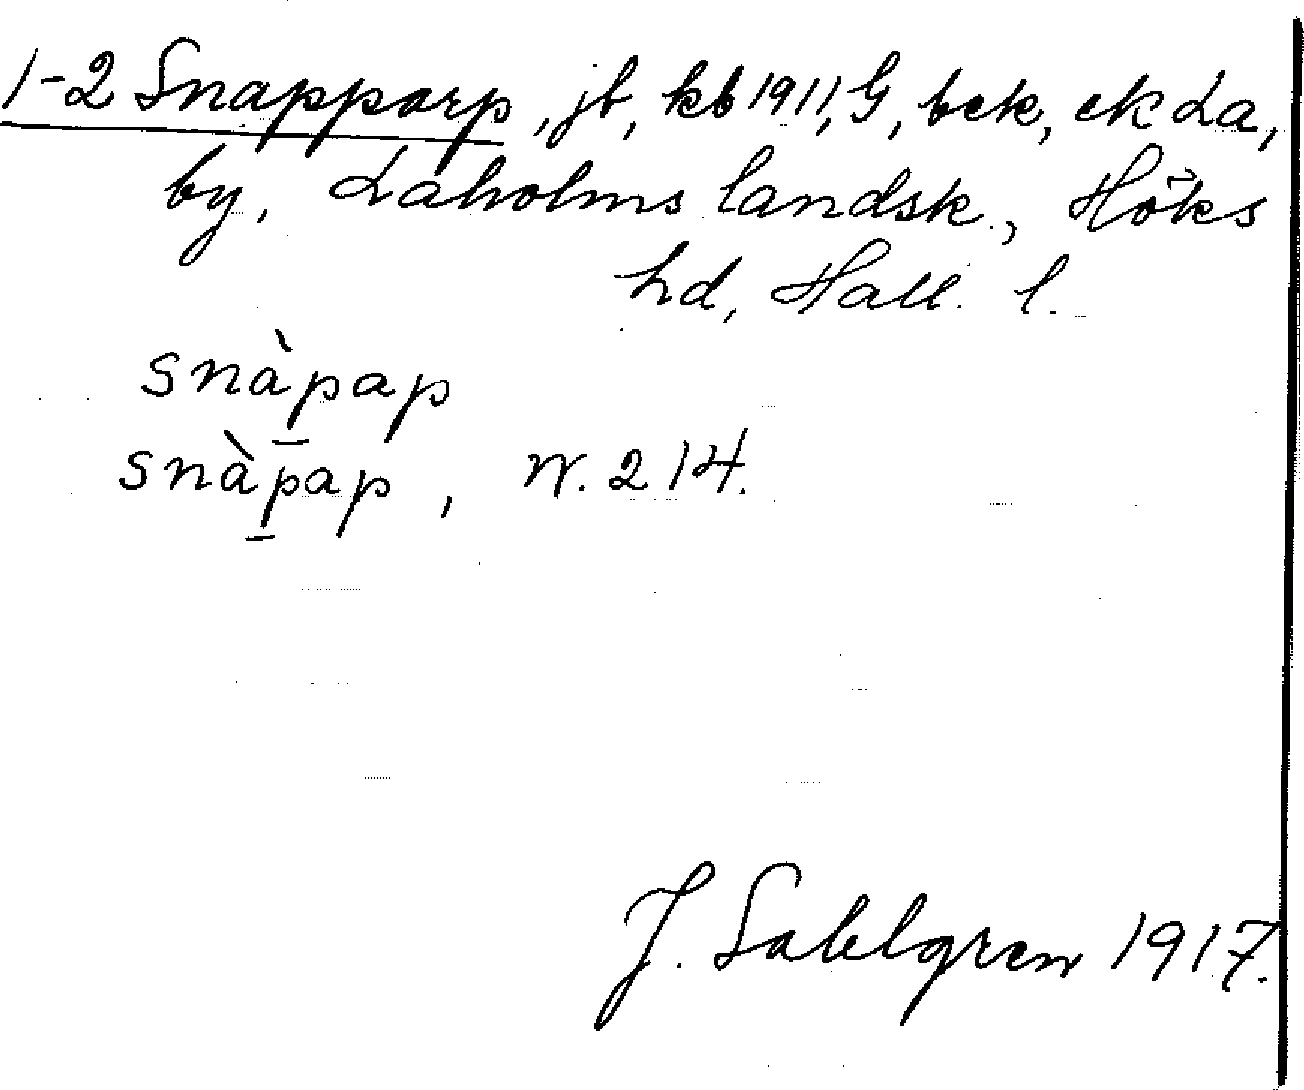 1-2 Snapparp, jb, kb 1911, G, bek, ek La,
by, Laholms landsk., Höks
hd, Hall. l.
snàpap
snàp̲ap, N. 214.
J. Sahlgren 1917.